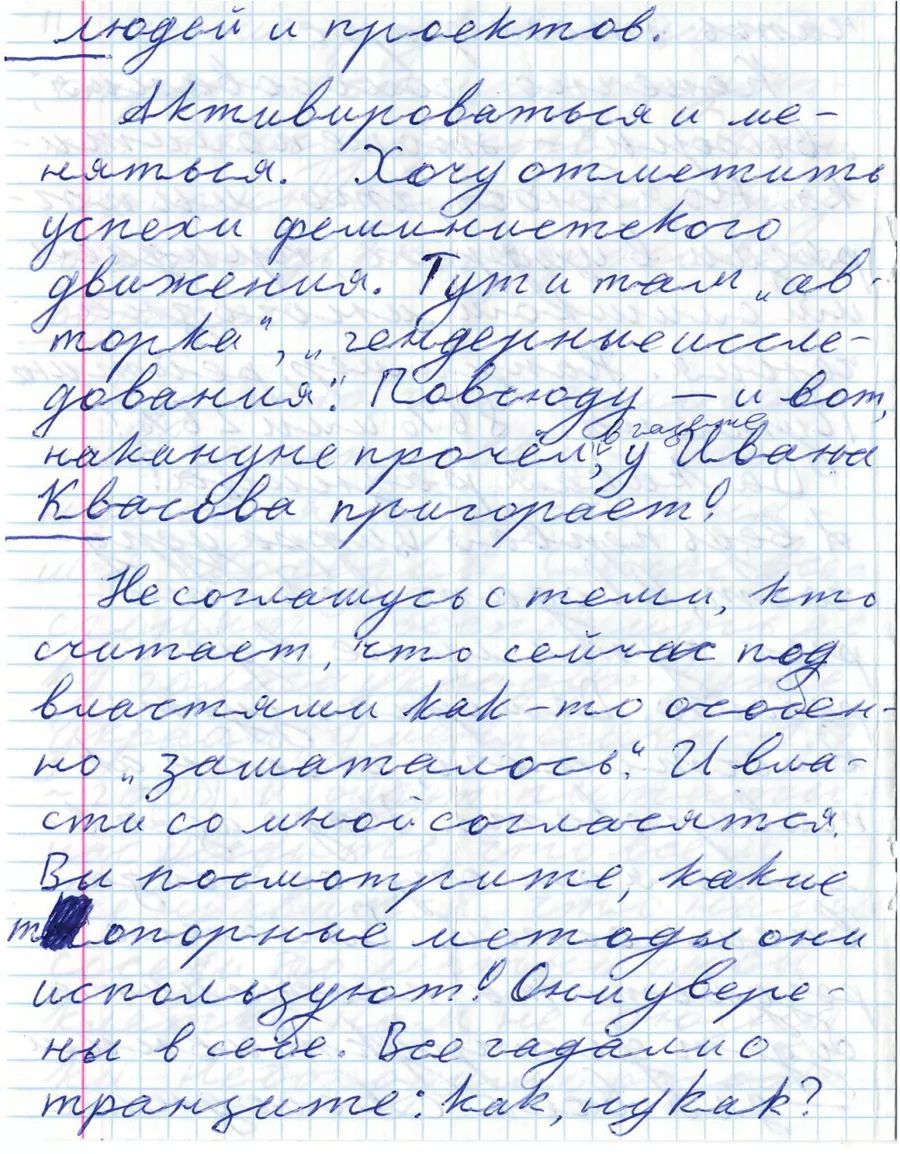 людей и проектов.
Активироваться и ме-
няться. Хочу отметить
успехи феминистского
движения. Тут и там „ав-
торка“, „гендерные иссле-
дования“. Повсюду — и вот,
в газете
накануне прочёл, у Ивана
Квасова пригорает!
Не соглашусь с теми, кто
считает, что сейчас под
властями как-то особен-
но „зашаталось“. И вла-
сти со мной согласятся.
Вы посмотрите, какие
топорные методы они
используют! Они увере-
ны в себе. Все гадали о
транзите: как, ну как?